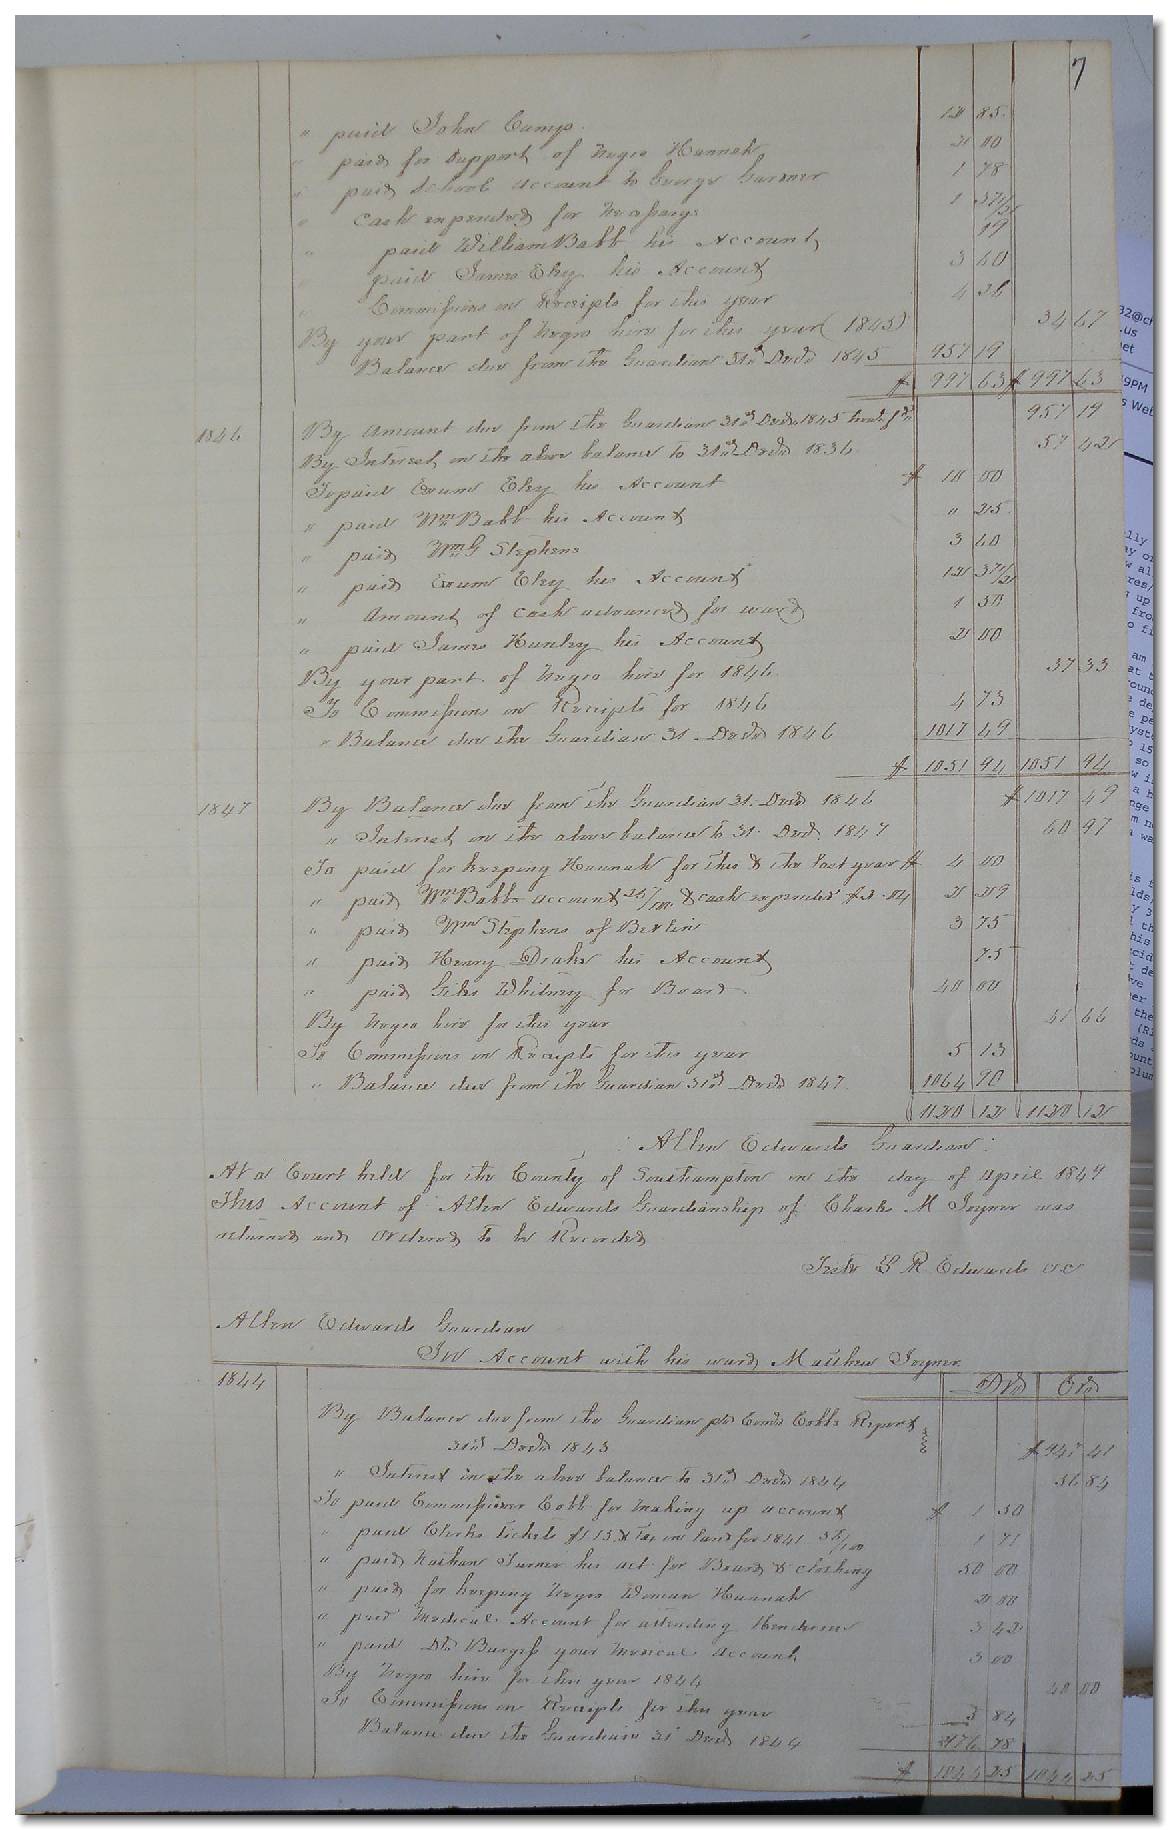 7
" paid John Camp 12 85
" paid for Support of Negro Hannah 2 00
" paid School Account to George Gardner 1 78
" Cash expended for Necessarys 1 37 1/2
" paid William Babb his Account 19
" paid James Eley his Account 3 60
" Commissions on Receipts for this year 4 36
By your part of Negro hire for this year (1845) 34 67
Balance due from the Guardian 31st Decr 1845 957 19
$ 997 63 $ 997 63
1846 By Amount due from the Guardian 31st Decr 1845 957 19
By Interest on the above balance to 31st Decr 57 42
To paid Exum Eley his Account $ 10 00
" paid Wm Babb his Account " 25
" paid Wm G Stephens 3 60
" paid Exum Eley his Account 12 37 1/2
" Amount of Cash advanced for ward 1 50
" paid James Hunley his Account 2 00
By your part of Negro hire for 1846 37 33
To Commissions on Receipts for 1846 4 73
" Balance due the Guardian 31 Decr 1846 1017 49
$ 1051 94 1051 94
1847 By Balance due from the Guardian 31 Decr 1846 $ 1017 49
" Interest on the above balance to 31 Decr 1847 60 97
To paid for keeping Hannah for this & the last year $ 4 00
" paid Wm Babbs account 25/100 & cash expended $2.04 2 29
" paid Wm Stephens of Berlin 3 75
" paid Henry Drake his Account 75
" paid Giles Whitney for Board 40 00
By Negro hire for this year 41 66
To Commissions on Receipts for this year 5 13
" Balance due from the Guardian 31st Decr 1847 1064 90
1120 12 1120 12
Allen Edwards Guardian
At a Court held for the County of Southampton on the day of April 1847
This Account of Allen Edwards Guardianship of Charles M Joyner was
returned and Ordered to be Recorded
Teste L R Edwards CC
Allen Edwards Guardian
In Account with his ward Matthew Joyner
1844 Drs Crs
By Balance due from the Guardian pr Comr Cobbs Report
31st Decr 1843 $ 947 41
" Interest on the above balance to 31st Decr 1844 56 84
To paid Commissioner Cobb for making up account $ 1 50
" paid Clerks Tickets $1.15 & Tax on land for 1841 56/100 1 71
" paid Nathan Turner his act for Board & clothing 50 00
" paid for keeping Negro Woman Hannah 2 00
" paid Medical Account for attending Henderson 5 42
" paid Dr Burgess your Medical Account 3 00
By Negro hire for this year 1844 40 00
To Commissions on Receipts for this year 3 84
Balance due the Guardian 31 Decr 1844 976 78
$ 1044 25 1044 25